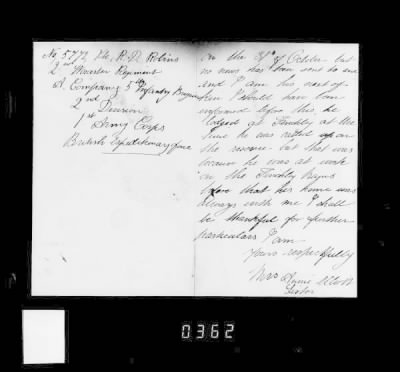 No 5772 Pte. R. D. Robins
2nd Worcester Regiment
A. Company 5th Infantry Brigade
2nd Division
1st Army Corps
British Expeditionary force
on the 31st of October but
no news has been sent to me
and I am his next of
kin I should have been
informed before this, he
lodged at Finchley at the
time he was called up on
the reserve but that was
because he was at work
on the Finchley
before that his home was
always with me I shall
be thankful for further
particulars I am
Yours respectfully
Mrs Annie
Sister
0362